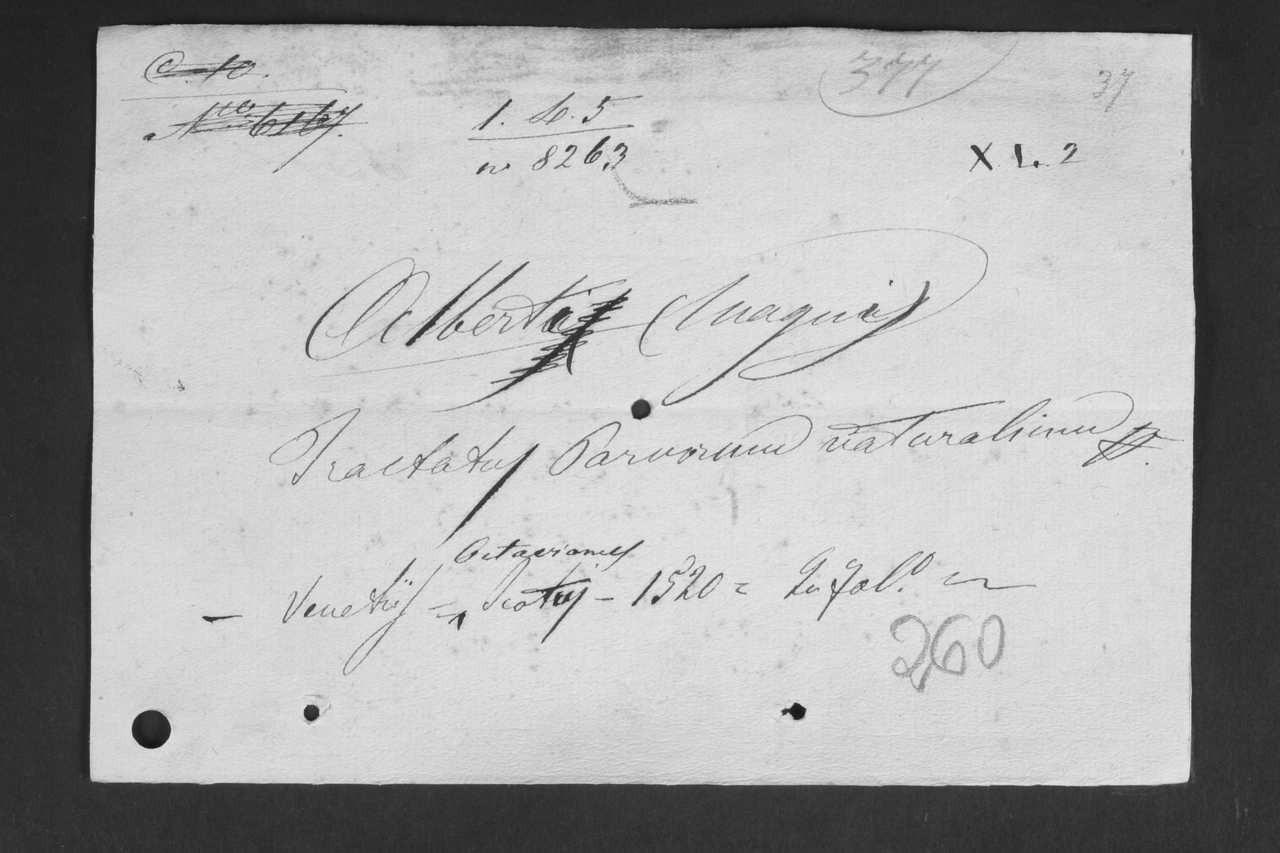 C. 10.
Nro. 6167.
377
37
1. H. 5
nº 8263
X L. 2
Alberti Magni
Tractatus Parvorum naturalium
Octavianus
— Venetiis = Scotus — 1520 = In fol.º
260